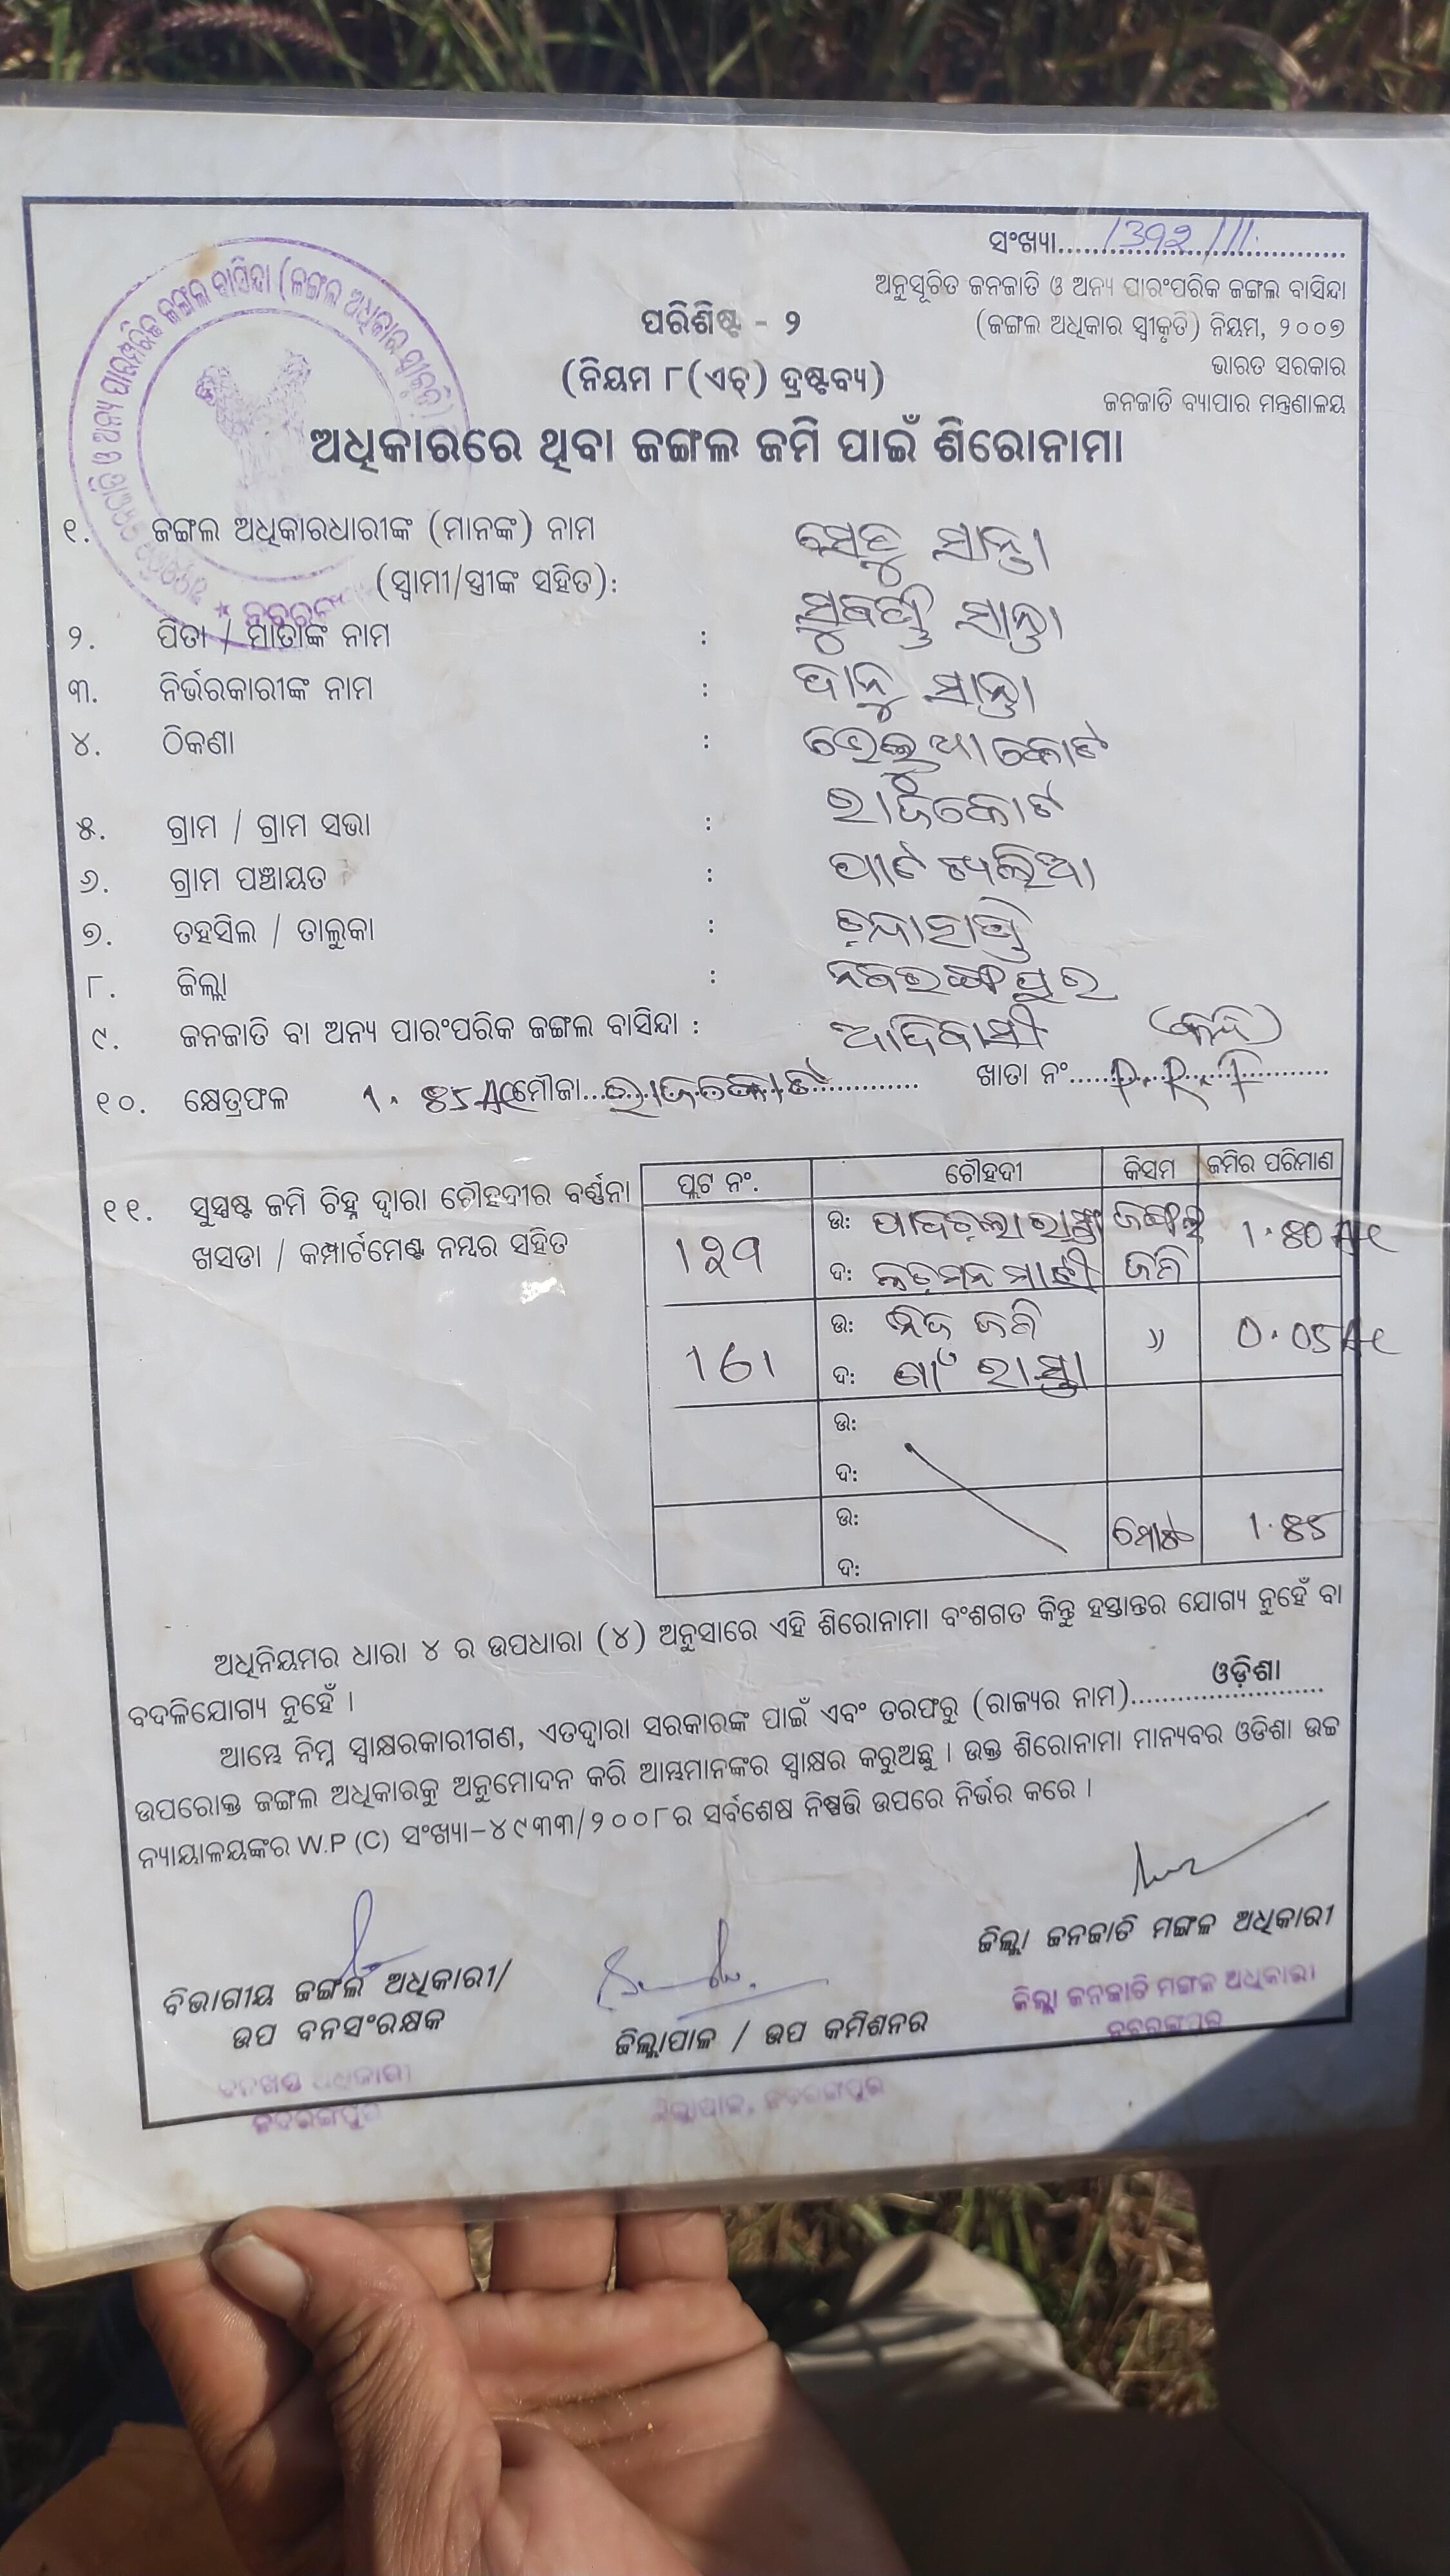 ସଂଖ୍ୟା.....1392/11.....
ଅନୁସୂଚିତ ଜନଜାତି ଓ ଅନ୍ୟ ପାରଂପରିକ ଜଙ୍ଗଲ ବାସିନ୍ଦା
(ଜଙ୍ଗଲ ଅଧିକାର ସ୍ୱୀକୃତି) ନିୟମ, ୨୦୦୭
ଭାରତ ସରକାର
ଜନଜାତି ବ୍ୟାପାର ମନ୍ତ୍ରଣାଳୟ
ପରିଶିଷ୍ଟ - ୨
(ନିୟମ ୮(ଏଚ୍) ଦ୍ରଷ୍ଟବ୍ୟ)
ଅଧିକାରରେ ଥିବା ଜଙ୍ଗଲ ଜମି ପାଇଁ ଶିରୋନାମା
୧. ଜଙ୍ଗଲ ଅଧିକାରଧାରୀଙ୍କ (ମାନଙ୍କ) ନାମ ସାନ୍ତା
(ସ୍ୱାମୀ/ସ୍ତ୍ରୀଙ୍କ ସହିତ): ସାନ୍ତା
୨. ପିତା / ମାତାଙ୍କ ନାମ :
୩. ନିର୍ଭରକାରୀଙ୍କ ନାମ : ସାନ୍ତା
୪. ଠିକଣା :
୫. ଗ୍ରାମ / ଗ୍ରାମ ସଭା : ରାଜକୋଟ
୬. ଗ୍ରାମ ପଞ୍ଚାୟତ :
୭. ତହସିଲ / ତାଲୁକା :
୮. ଜିଲ୍ଲା : ନବରଙ୍ଗପୁର
୯. ଜନଜାତି ବା ଅନ୍ୟ ପାରଂପରିକ ଜଙ୍ଗଲ ବାସିନ୍ଦା : ଆଦିବାସୀ
୧୦. କ୍ଷେତ୍ରଫଳ 1.85 Ac ମୌଜା.....ରାଜକୋଟ..... ଖାତା ନଂ.....
୧୧. ସୁସ୍ପଷ୍ଟ ଜମି ଚିହ୍ନ ଦ୍ୱାରା ଚୌହଦୀର ବର୍ଣ୍ଣନା
ଖସଡା / କମ୍ପାର୍ଟମେଣ୍ଟ ନମ୍ବର ସହିତ
ପ୍ଲଟ ନଂ. ଚୌହଦୀ କିସମ ଜମିର ପରିମାଣ
ଉ: ଜଙ୍ଗଲ 1.80 Ac
ଦ: ଜମି
161 ଉ: ନିଜ ଜମି " 0.05 Ac
ଦ: ଗାଁ ରାସ୍ତା
ଉ:
ଦ:
ଉ: ମୋଟ 1.85
ଦ:
ଅଧିନିୟମର ଧାରା ୪ ର ଉପଧାରା (୪) ଅନୁସାରେ ଏହି ଶିରୋନାମା ବଂଶଗତ କିନ୍ତୁ ହସ୍ତାନ୍ତର ଯୋଗ୍ୟ ନୁହେଁ ବା
ବଦଳିଯୋଗ୍ୟ ନୁହେଁ ।
ଆମ୍ଭେ ନିମ୍ନ ସ୍ୱାକ୍ଷରକାରୀଗଣ, ଏତଦ୍ୱାରା ସରକାରଙ୍କ ପାଇଁ ଏବଂ ତରଫରୁ (ରାଜ୍ୟର ନାମ).....ଓଡ଼ିଶା.....
ଉପରୋକ୍ତ ଜଙ୍ଗଲ ଅଧିକାରକୁ ଅନୁମୋଦନ କରି ଆମ୍ଭମାନଙ୍କର ସ୍ୱାକ୍ଷର କରୁଅଛୁ । ଉକ୍ତ ଶିରୋନାମା ମାନ୍ୟବର ଓଡିଶା ଉଚ୍ଚ
ନ୍ୟାୟାଳୟଙ୍କର W.P (C) ସଂଖ୍ୟା-୪୯୩୩/୨୦୦୮ର ସର୍ବଶେଷ ନିଷ୍ପତ୍ତି ଉପରେ ନିର୍ଭର କରେ ।
ବିଭାଗୀୟ ଜଙ୍ଗଲ ଅଧିକାରୀ/
ଉପ ବନସଂରକ୍ଷକ
ଜିଲ୍ଲାପାଳ / ଉପ କମିଶନର
ଜିଲ୍ଲା ଜନଜାତି ମଙ୍ଗଳ ଅଧିକାରୀ
ଜିଲ୍ଲା ଜନଜାତି ମଙ୍ଗଳ ଅଧିକାରୀ
ନବରଙ୍ଗପୁର
ବନଖଣ୍ଡ ଅଧିକାରୀ
ନବରଙ୍ଗପୁର
ଜିଲ୍ଲାପାଳ, ନବରଙ୍ଗପୁର